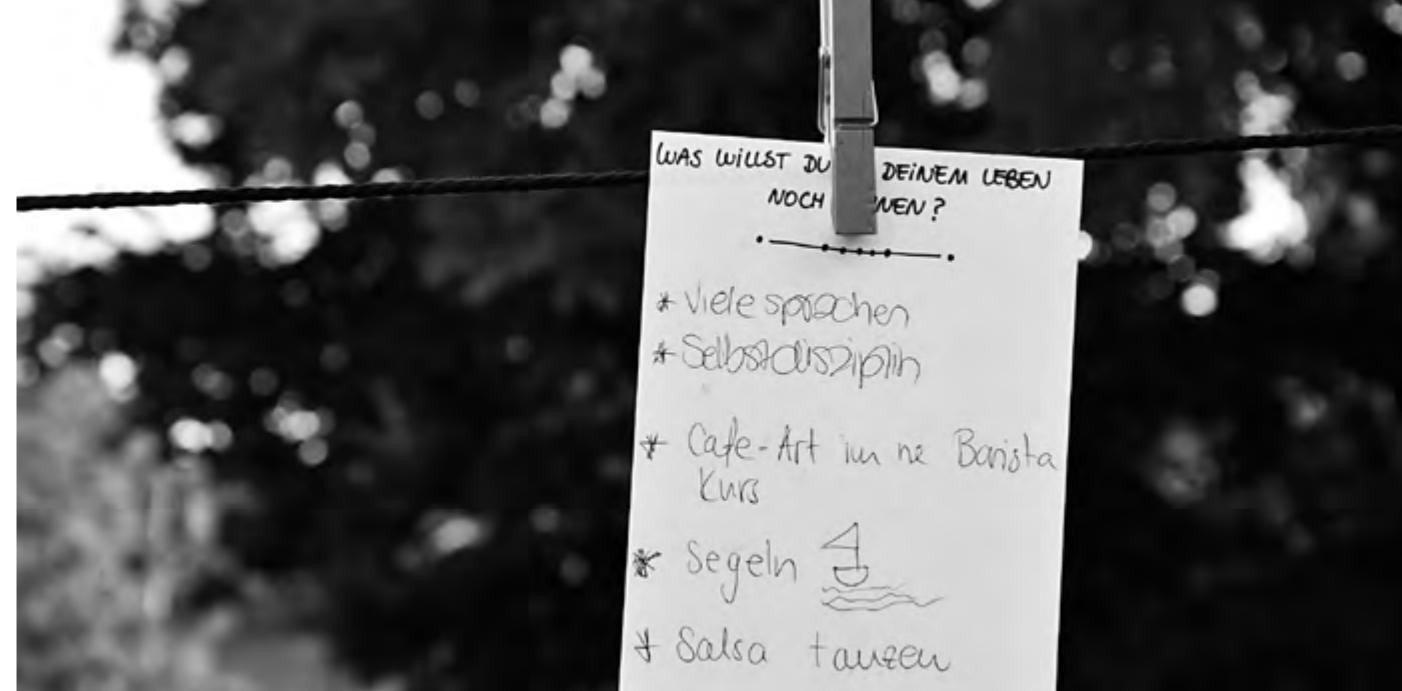 WAS WILLST DU DEINEM LEBEN
NOCH NEN?
* Viele sprachen
* Selbstdisziplin
* Cafe-Art im ne Barista
Kurs
* Segeln
* Salsa tanzen